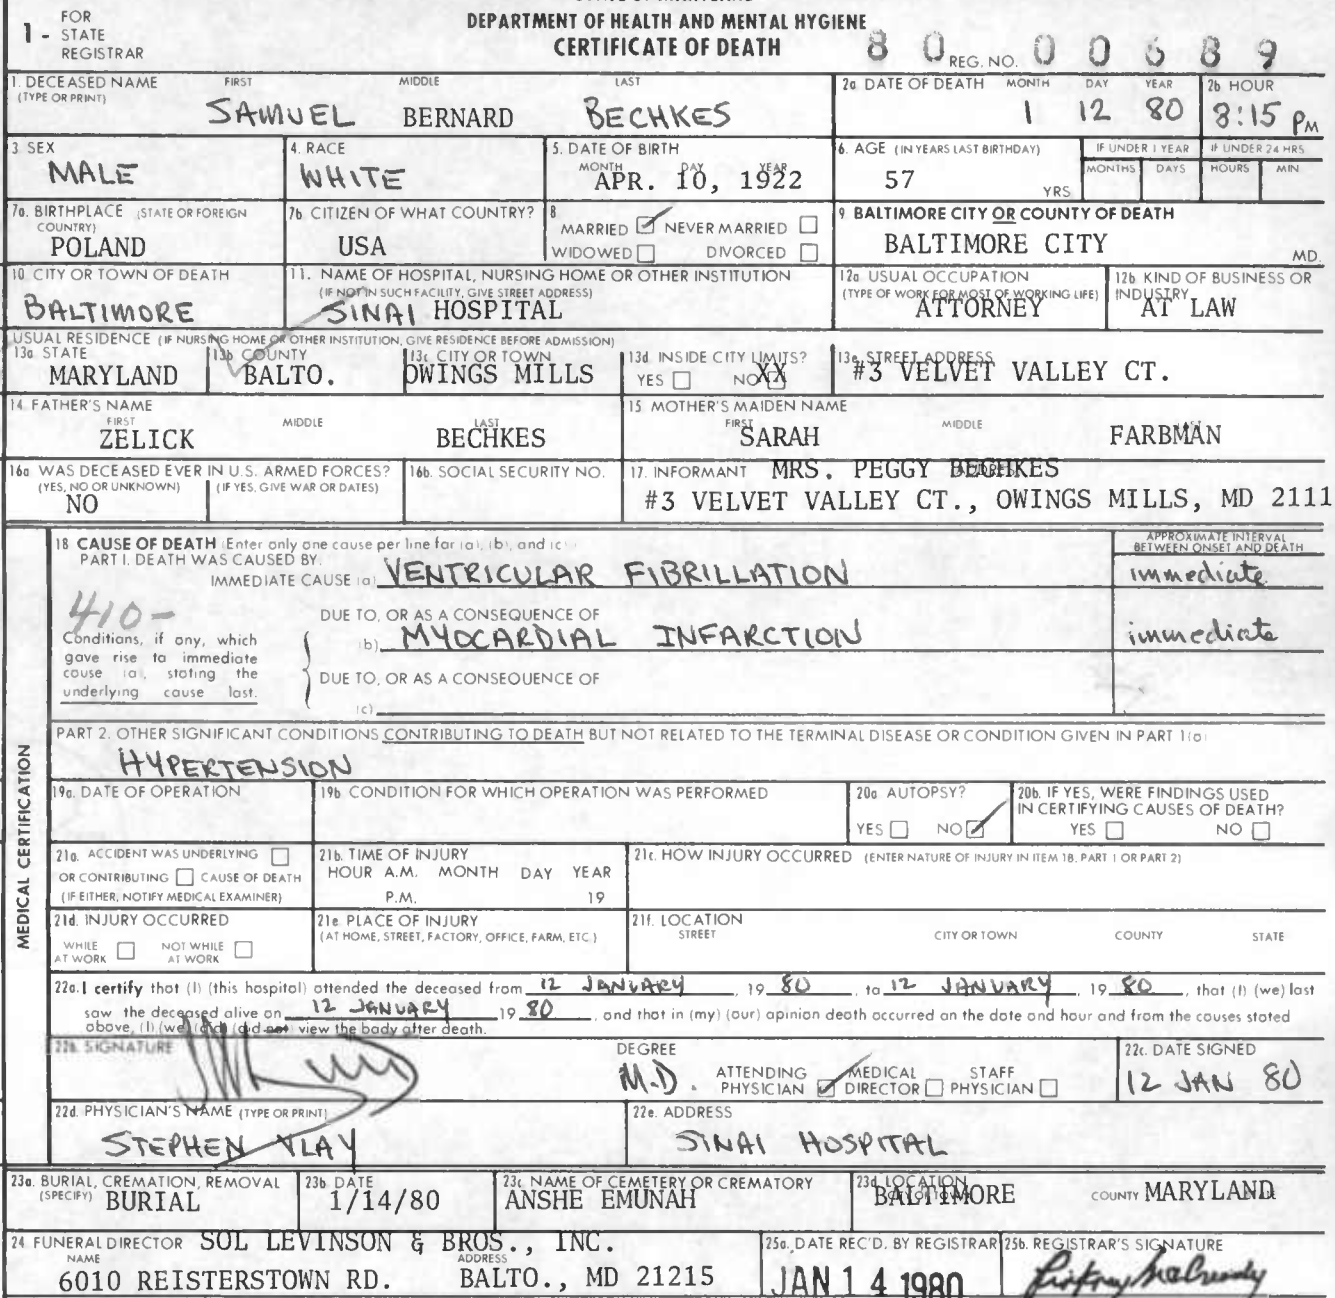 1 - FOR STATE REGISTRAR
DEPARTMENT OF HEALTH AND MENTAL HYGIENE
CERTIFICATE OF DEATH
REG. NO. 80 00689
1. DECEASED NAME (TYPE OR PRINT) FIRST MIDDLE LAST
SAMUEL BERNARD BECHKES
2a DATE OF DEATH MONTH DAY YEAR
1 12 80
2b HOUR
8:15 PM
3 SEX
MALE
4. RACE
WHITE
5. DATE OF BIRTH
MONTH DAY YEAR
APR. 10, 1922
6. AGE (IN YEARS LAST BIRTHDAY)
57 YRS
IF UNDER 1 YEAR
MONTHS DAYS
IF UNDER 24 HRS
HOURS MIN
7a. BIRTHPLACE (STATE OR FOREIGN COUNTRY)
POLAND
7b CITIZEN OF WHAT COUNTRY?
USA
8
MARRIED ☑ NEVER MARRIED ☐
WIDOWED ☐ DIVORCED ☐
9 BALTIMORE CITY OR COUNTY OF DEATH
BALTIMORE CITY MD.
10 CITY OR TOWN OF DEATH
BALTIMORE
11. NAME OF HOSPITAL, NURSING HOME OR OTHER INSTITUTION
(IF NOT IN SUCH FACILITY, GIVE STREET ADDRESS)
SINAI HOSPITAL
12a USUAL OCCUPATION
(TYPE OF WORK FOR MOST OF WORKING LIFE)
ATTORNEY
12b KIND OF BUSINESS OR INDUSTRY
AT LAW
USUAL RESIDENCE (IF NURSING HOME OR OTHER INSTITUTION, GIVE RESIDENCE BEFORE ADMISSION)
13a STATE
MARYLAND
13b COUNTY
BALTO.
13c CITY OR TOWN
OWINGS MILLS
13d INSIDE CITY LIMITS?
YES ☐ NO XX
13e STREET ADDRESS
#3 VELVET VALLEY CT.
14 FATHER'S NAME
FIRST MIDDLE LAST
ZELICK BECHKES
15 MOTHER'S MAIDEN NAME
FIRST MIDDLE
SARAH FARBMAN
16a WAS DECEASED EVER IN U.S. ARMED FORCES?
(YES, NO OR UNKNOWN) (IF YES, GIVE WAR OR DATES)
NO
16b. SOCIAL SECURITY NO.
17. INFORMANT MRS. PEGGY BECHKES
#3 VELVET VALLEY CT., OWINGS MILLS, MD 2111
MEDICAL CERTIFICATION
18 CAUSE OF DEATH (Enter only one cause per line for (a), (b), and (c))
APPROXIMATE INTERVAL BETWEEN ONSET AND DEATH
PART I. DEATH WAS CAUSED BY:
IMMEDIATE CAUSE (a) VENTRICULAR FIBRILLATION immediate
410-
Conditions, if any, which gave rise to immediate cause (a), stating the underlying cause last.
DUE TO, OR AS A CONSEQUENCE OF
(b) MYOCARDIAL INFARCTION immediate
DUE TO, OR AS A CONSEQUENCE OF
(c)
PART 2. OTHER SIGNIFICANT CONDITIONS CONTRIBUTING TO DEATH BUT NOT RELATED TO THE TERMINAL DISEASE OR CONDITION GIVEN IN PART 1(a)
HYPERTENSION
19a. DATE OF OPERATION
19b CONDITION FOR WHICH OPERATION WAS PERFORMED
20a AUTOPSY?
YES ☐ NO ☑
20b. IF YES, WERE FINDINGS USED IN CERTIFYING CAUSES OF DEATH?
YES ☐ NO ☐
21a. ACCIDENT WAS UNDERLYING ☐
OR CONTRIBUTING ☐ CAUSE OF DEATH
(IF EITHER, NOTIFY MEDICAL EXAMINER)
21b. TIME OF INJURY
HOUR A.M. MONTH DAY YEAR
P.M. 19
21c. HOW INJURY OCCURRED (ENTER NATURE OF INJURY IN ITEM 18, PART 1 OR PART 2)
21d. INJURY OCCURRED
WHILE AT WORK ☐ NOT WHILE AT WORK ☐
21e PLACE OF INJURY
(AT HOME, STREET, FACTORY, OFFICE, FARM, ETC.)
21f. LOCATION
STREET CITY OR TOWN COUNTY STATE
22a. I certify that (I) (this hospital) attended the deceased from 12 JANUARY, 19 80, to 12 JANUARY, 19 80, that (I) (we) last
saw the deceased alive on 12 JANUARY 19 80, and that in (my) (our) opinion death occurred on the date and hour and from the causes stated
above, (I) (we) (did) (did not) view the body after death.
22b. SIGNATURE
DEGREE
M.D.
ATTENDING PHYSICIAN ☑ MEDICAL DIRECTOR ☐ STAFF PHYSICIAN ☐
22c. DATE SIGNED
12 JAN 80
22d. PHYSICIAN'S NAME (TYPE OR PRINT)
STEPHEN VLAY
22e. ADDRESS
SINAI HOSPITAL
23a. BURIAL, CREMATION, REMOVAL (SPECIFY)
BURIAL
23b DATE
1/14/80
23c NAME OF CEMETERY OR CREMATORY
ANSHE EMUNAH
23d LOCATION
BALTIMORE COUNTY MARYLAND
24 FUNERAL DIRECTOR SOL LEVINSON & BROS., INC.
NAME ADDRESS
6010 REISTERSTOWN RD. BALTO., MD 21215
25a. DATE REC'D. BY REGISTRAR
JAN 14 1980
25b. REGISTRAR'S SIGNATURE